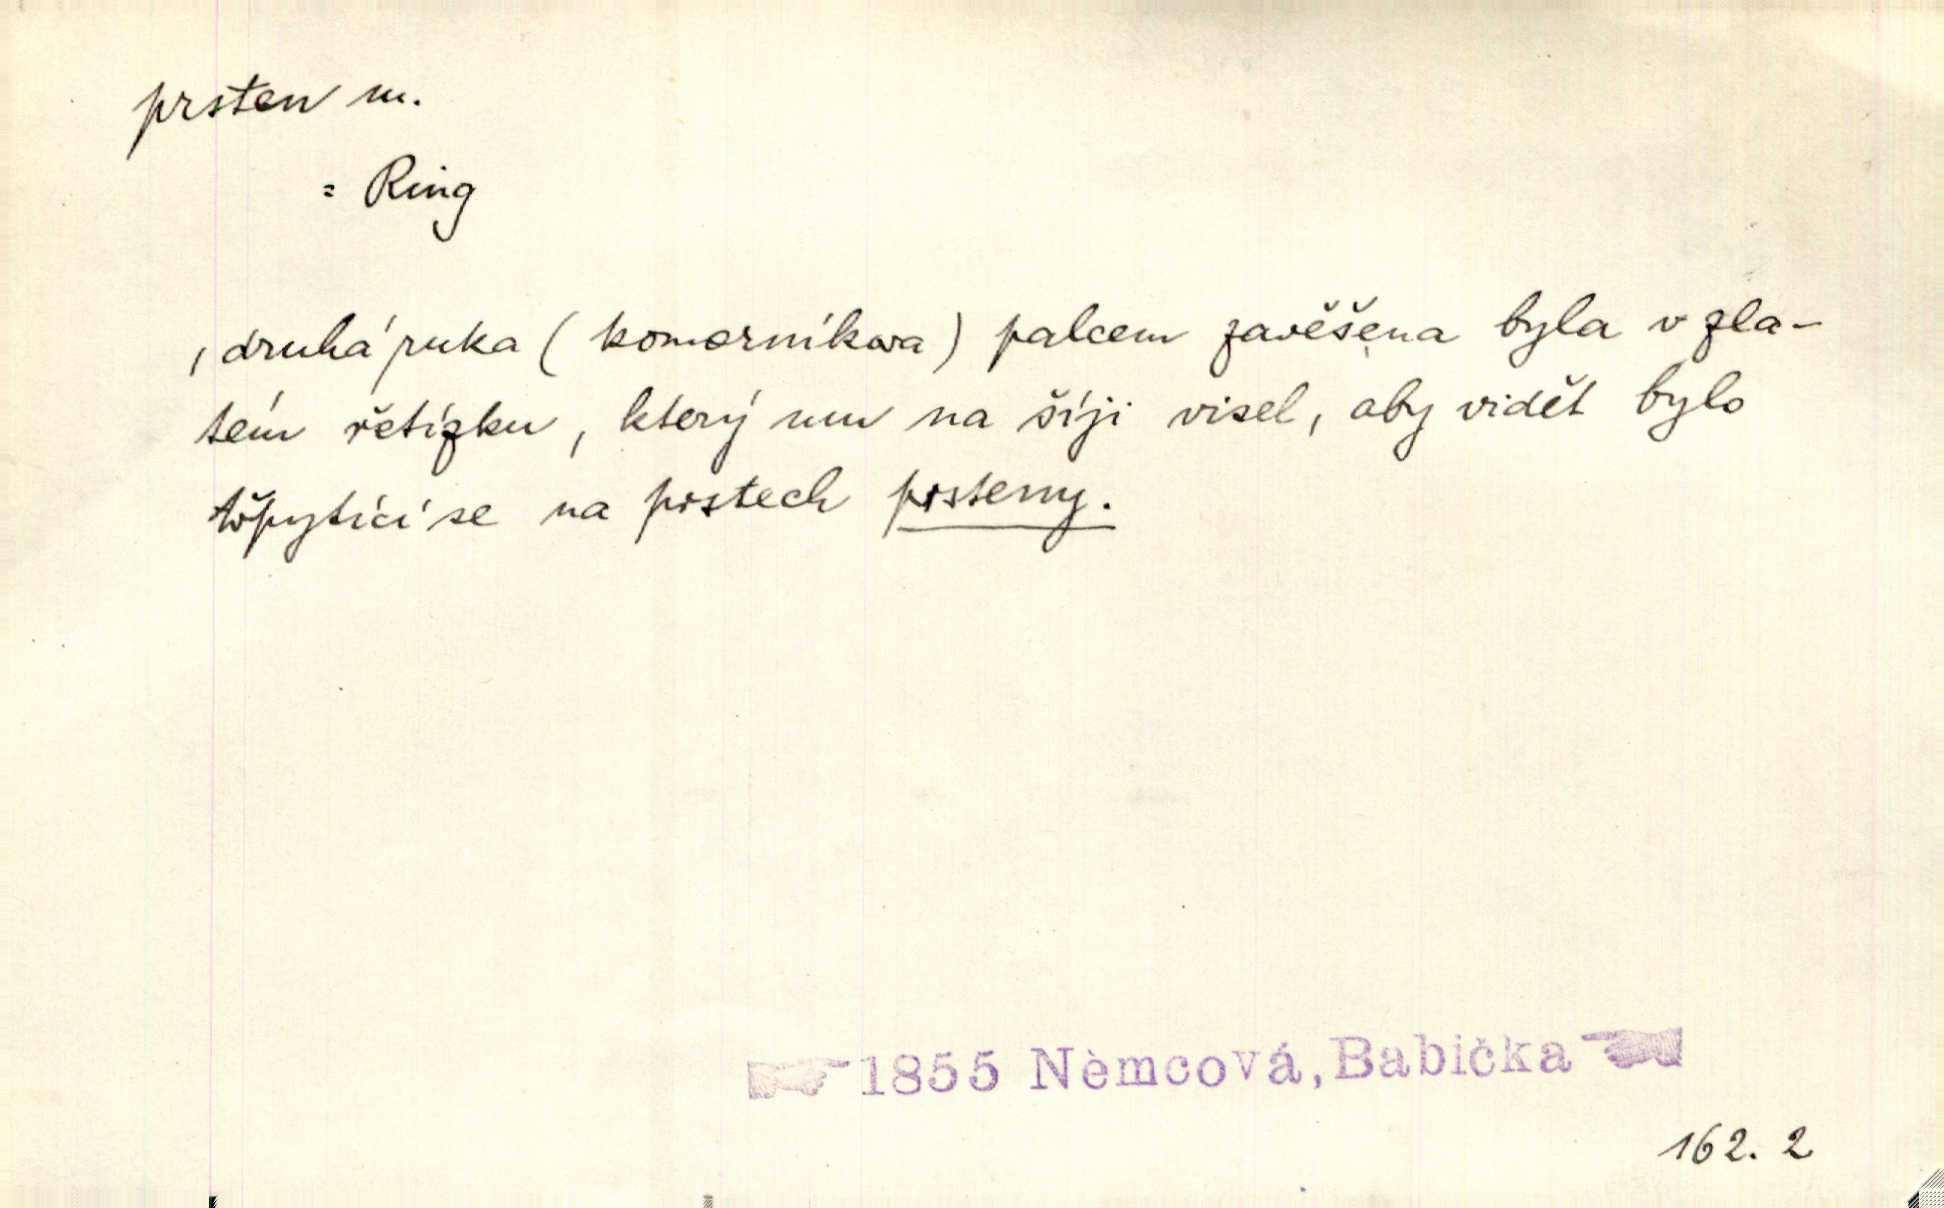 prsten m.
= Ring
, druhá ruka (komorníkova) palcem zavěšena byla v zla-
tém řetízku, který mu na šíji visel, aby vidět bylo
třpytící se na prstech prsteny.
1855 Němcová, Babička
162. 2